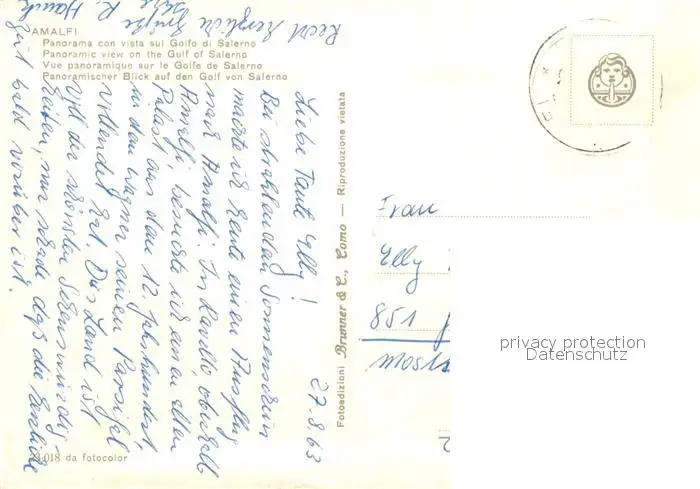 AMALFI
Panorama con vista sul Golfo di Salerno
Panoramic view on the Gulf of Salerno
Vue panoramique sur le Golfe de Salerno
Panoramischer Blick auf den Golf von Salerno
27.8.63
Liebe Tante Elly!
Bei strahlendem Sonnenschein
machte ich heute einen Ausflug
nach Amalfi. In Ravello, oberhalb
Amalfi, besuchte ich einen alten
Palast aus dem 12. Jahrhundert,
in dem Wagner seinen Parsifal
vollendet hat. Das Land ist
voll der schönsten Sehenswürdig-
keiten, nur schade, daß die herrliche
Zeit bald vorüber ist.
Recht herzliche Grüße
R.
Fotoedizioni Brunner & C., Como — Riproduzione vietata
Frau
Elly
851
privacy protection
Datenschutz
018 da fotocolor